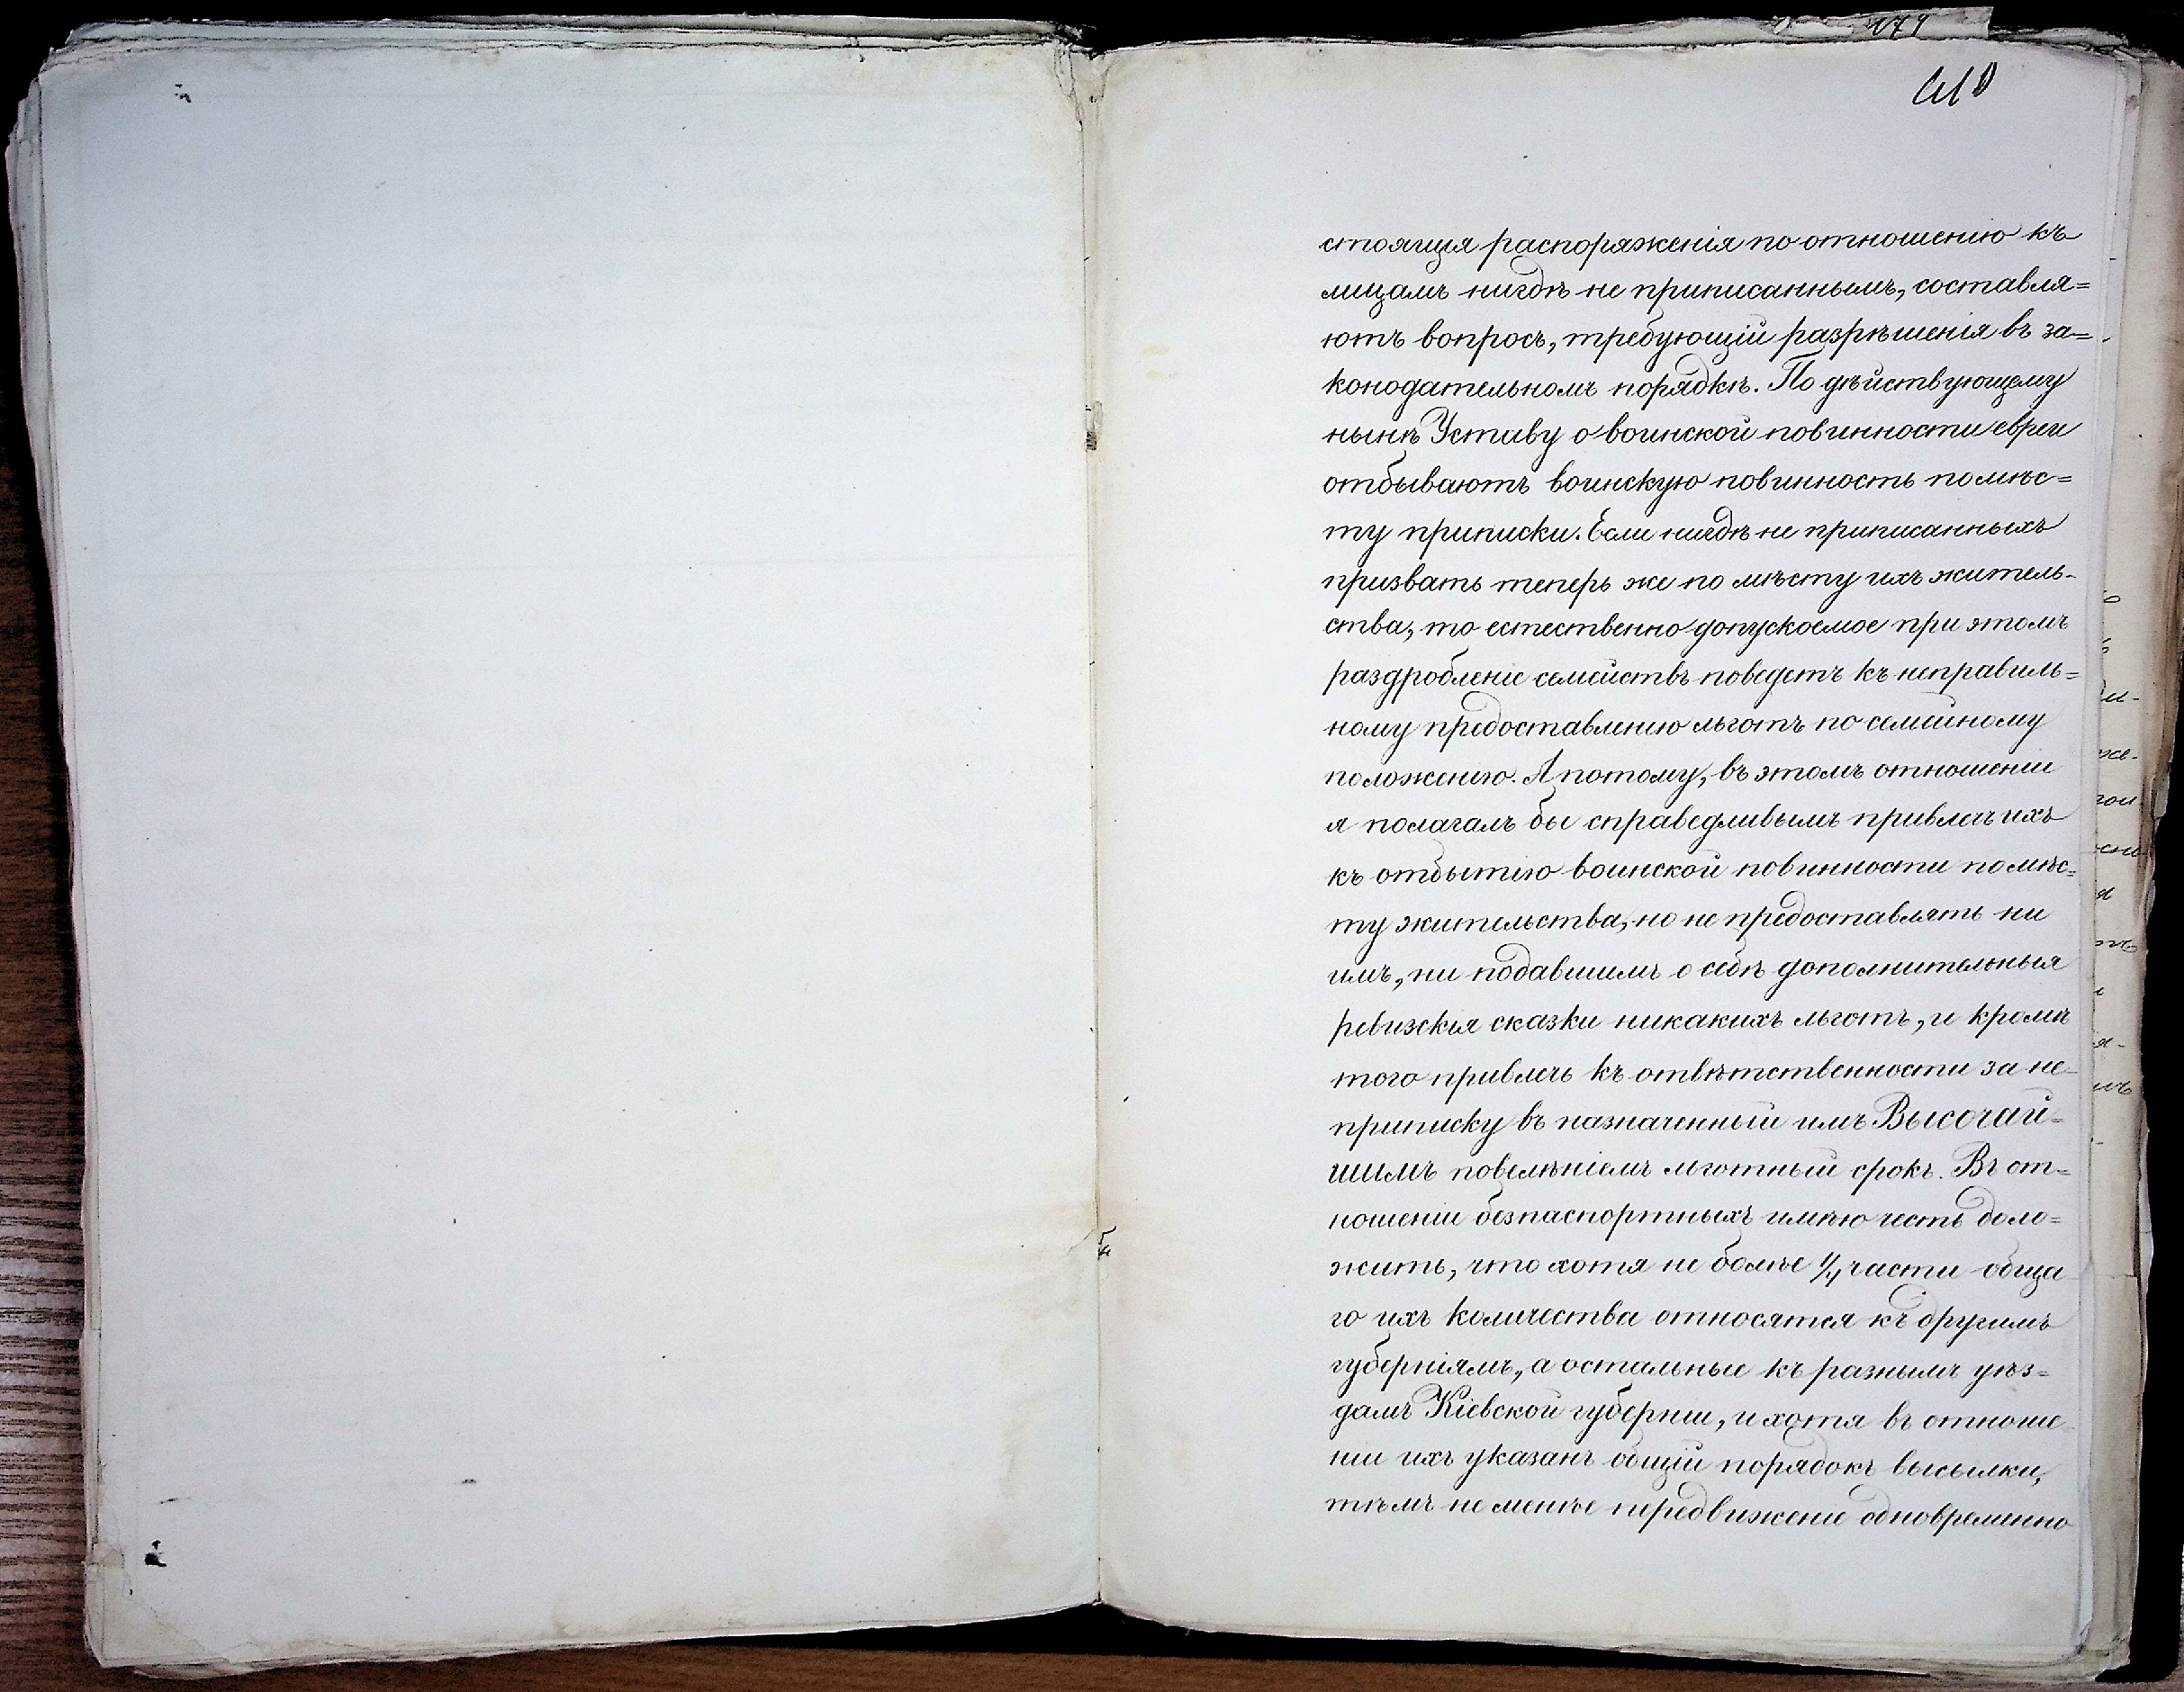 179
стоящія распоряженія по отношенію къ
лицамъ нигдѣ не приписаннымъ, составля=
ютъ вопросъ, требующій разрѣшенія въ за=
конодательномъ порядкѣ. По дѣйствующему
нынѣ Уставу о воинской повинности евреи
отбываютъ воинскую повинность по мѣс=
ту приписки. Если нигдѣ не приписанныхъ
призвать теперь же по мѣсту ихъ житель-
ства, то естественно допускаемое при этомъ
раздробленіе семействъ поведетъ къ неправиль=
ному предоставленію льготъ по семейному
положенію. А потому, въ этомъ отношеніи
я полагалъ бы справедливымъ привлечь ихъ
къ отбытію воинской повинности по мѣс=
ту жительства, но не предоставлять ни
имъ, ни подавшимъ о себѣ дополнительныя
ревизскія сказки никакихъ льготъ, и кромѣ
того привлечь къ отвѣтственности за не-
приписку въ назначенный имъ Высочай=
шимъ повелѣніемъ льготный срокъ. Въ от=
ношеніи безпаспортныхъ имѣю честь доло=
жить, что хотя не болѣе части обща
го ихъ количества относятся къ другимъ
губерніямъ, а остальные къ разнымъ уѣз=
дамъ Кіевской губерніи, и хотя въ отноше
ніи ихъ указанъ общій порядокъ высылки,
тѣмъ не менѣе передвиженіе одновременно